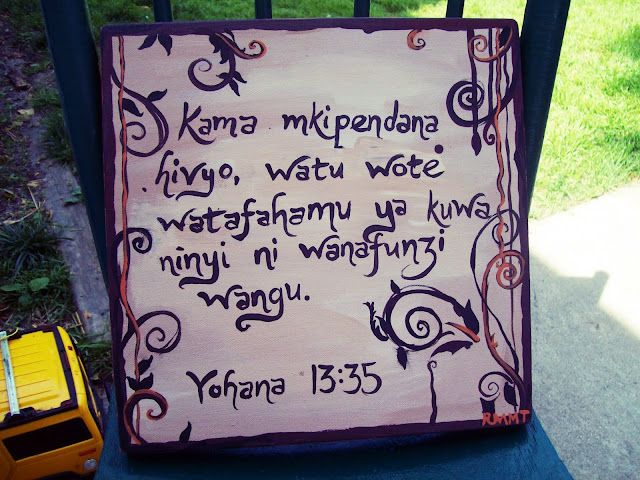 Kama mkipendana
hivyo, watu wote
watafahamu ya kuwa
ninyi ni wanafunzi
wangu.
Yohana 13:35
RMMT